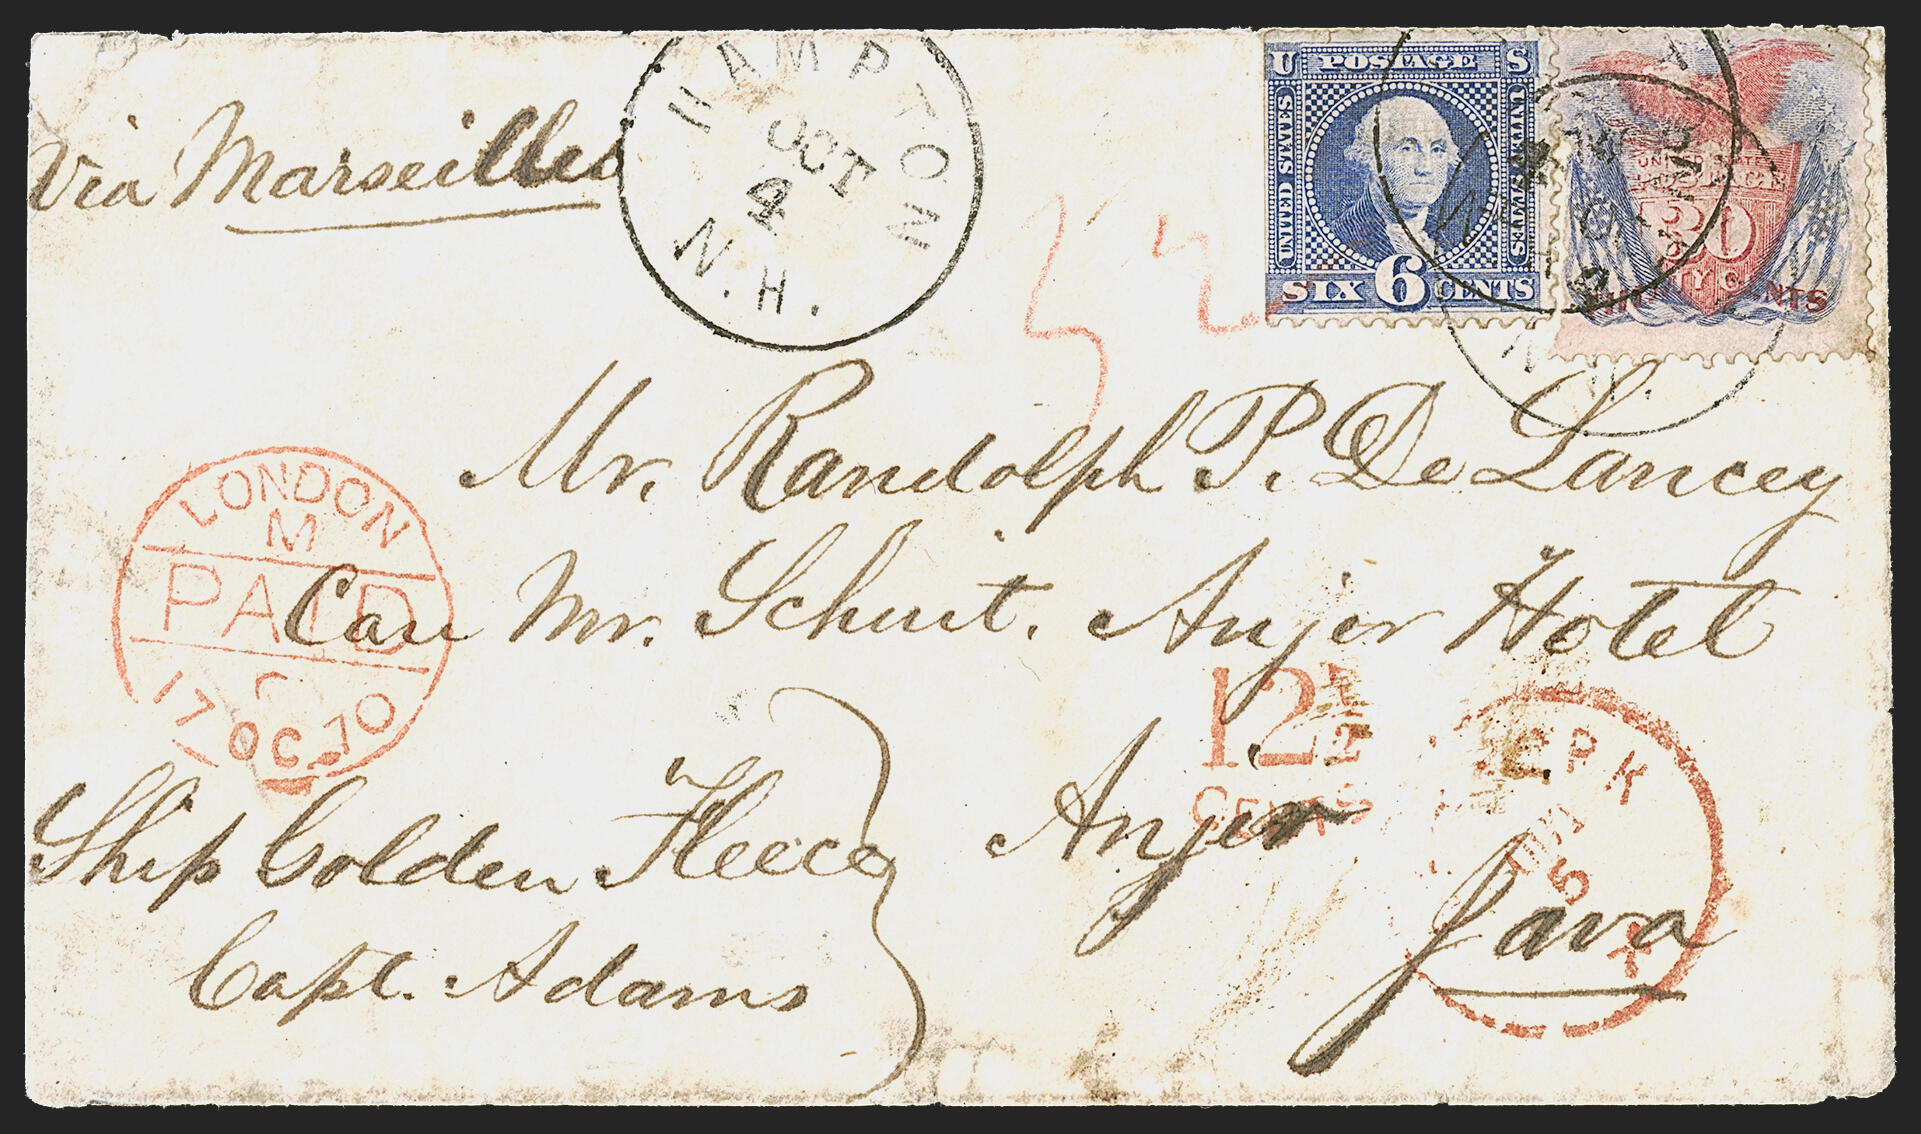 Via Marseilles
HAMPTON
OCT
N.H.
U POSTAGE S
UNITED STATES
SIX 6 CENTS
UNITED STATES
POSTAGE
30
THIRTY CENTS
Mr. Randolph P. De Lancey
Care Mr. Schuit. Anjer Hotel
Anjer
Java
LONDON
M
PAID
17 OC 70
12½
CENTS
Ship Golden Fleece
Capt. Adams